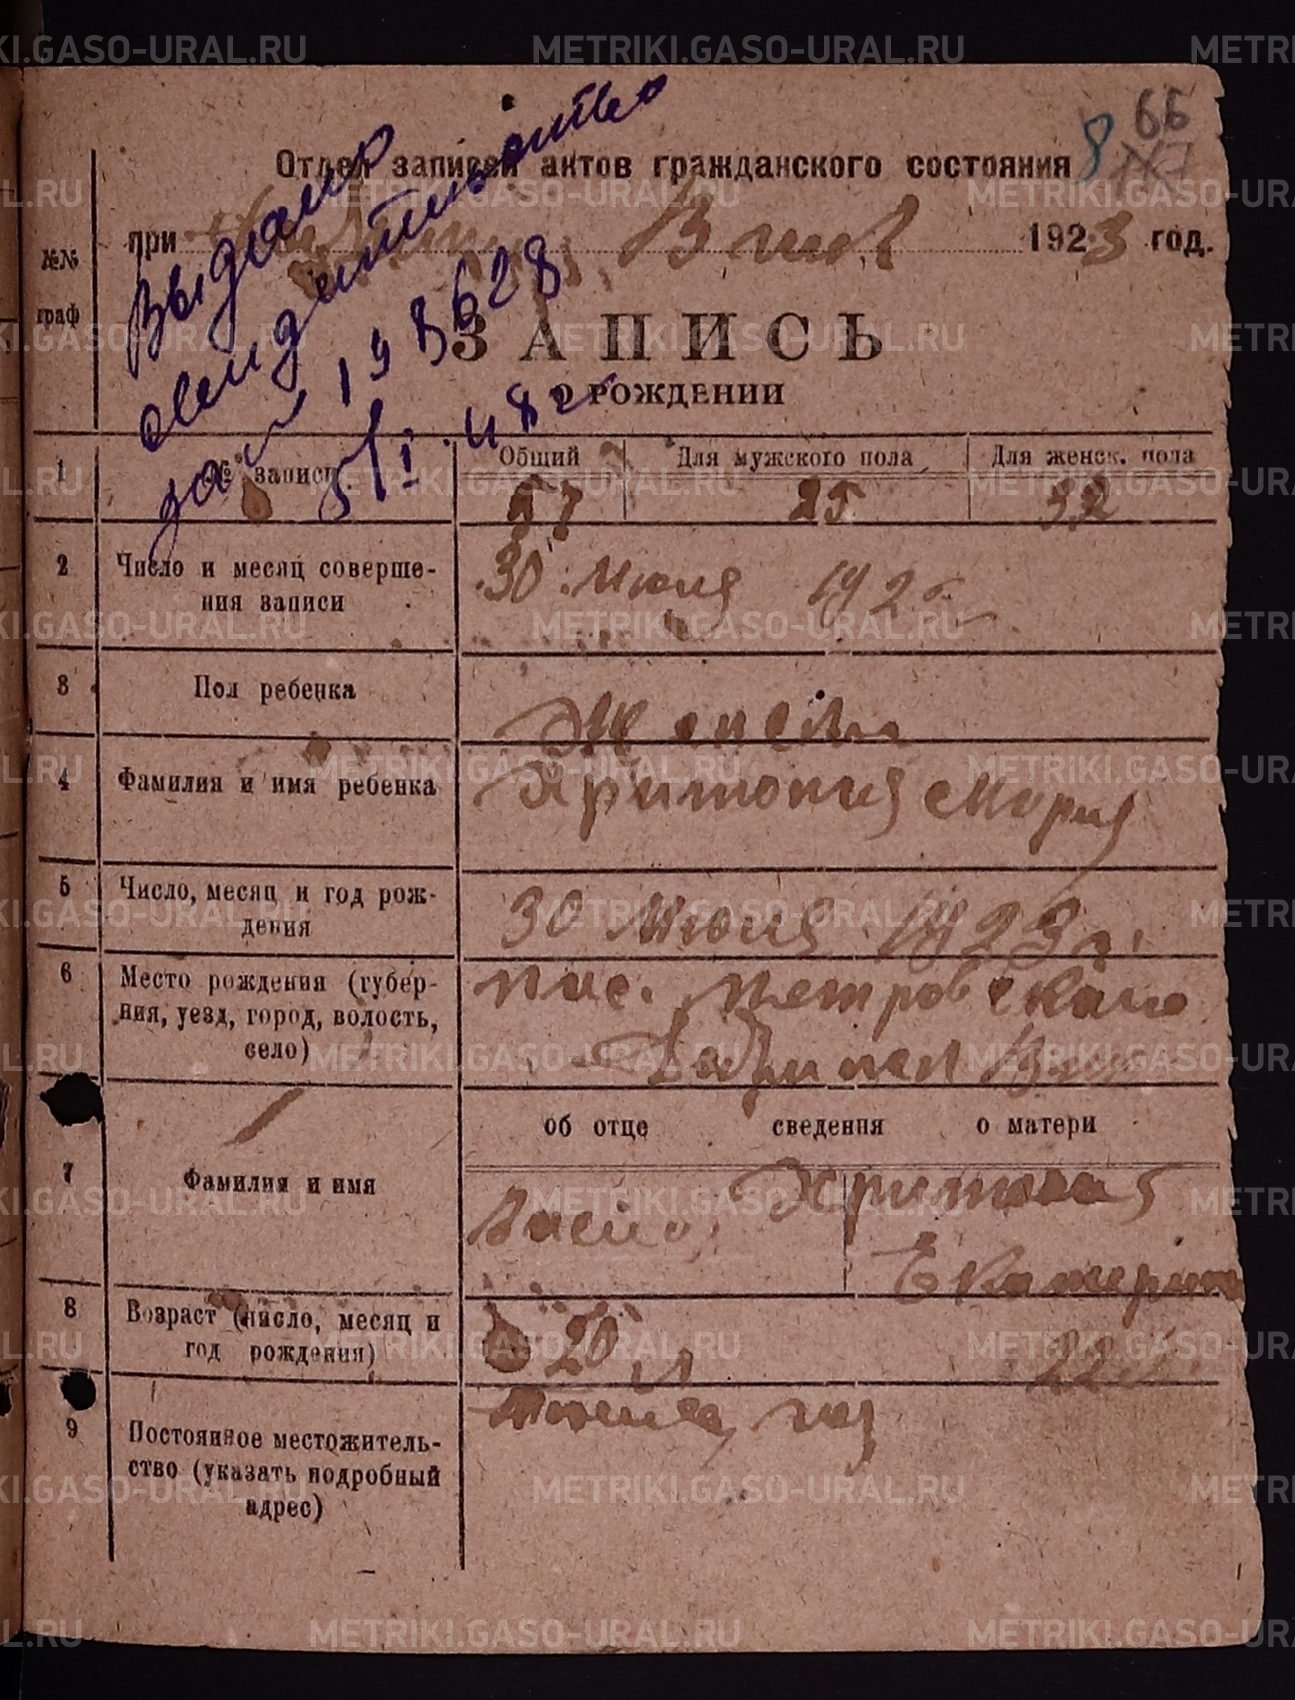 METRIKI.GASO-URAL.RU
66
8
Отдел записей актов гражданского состояния
при 1923 год.
Выдано
свидетельство
198628
5/I 48 г.
№№ граф
ЗАПИСЬ
О РОЖДЕНИИ
1 № записи Общий Для мужского пола Для женск. пола
57 25 32
2 Число и месяц соверше-
ния записи
30 Июля 192
3 Пол ребенка
4 Фамилия и имя ребенка
Мария
5 Число, месяц и год рож-
дения
30 Июля 1923 г.
6 Место рождения (губер-
ния, уезд, город, волость,
село)
пос. Петровского
об отце сведения о матери
7 Фамилия и имя
Екатерина
8 Возраст (число, месяц и
год рождения)
20 л 22 л.
9 Постоянное местожитель-
ство (указать подробный
адрес)